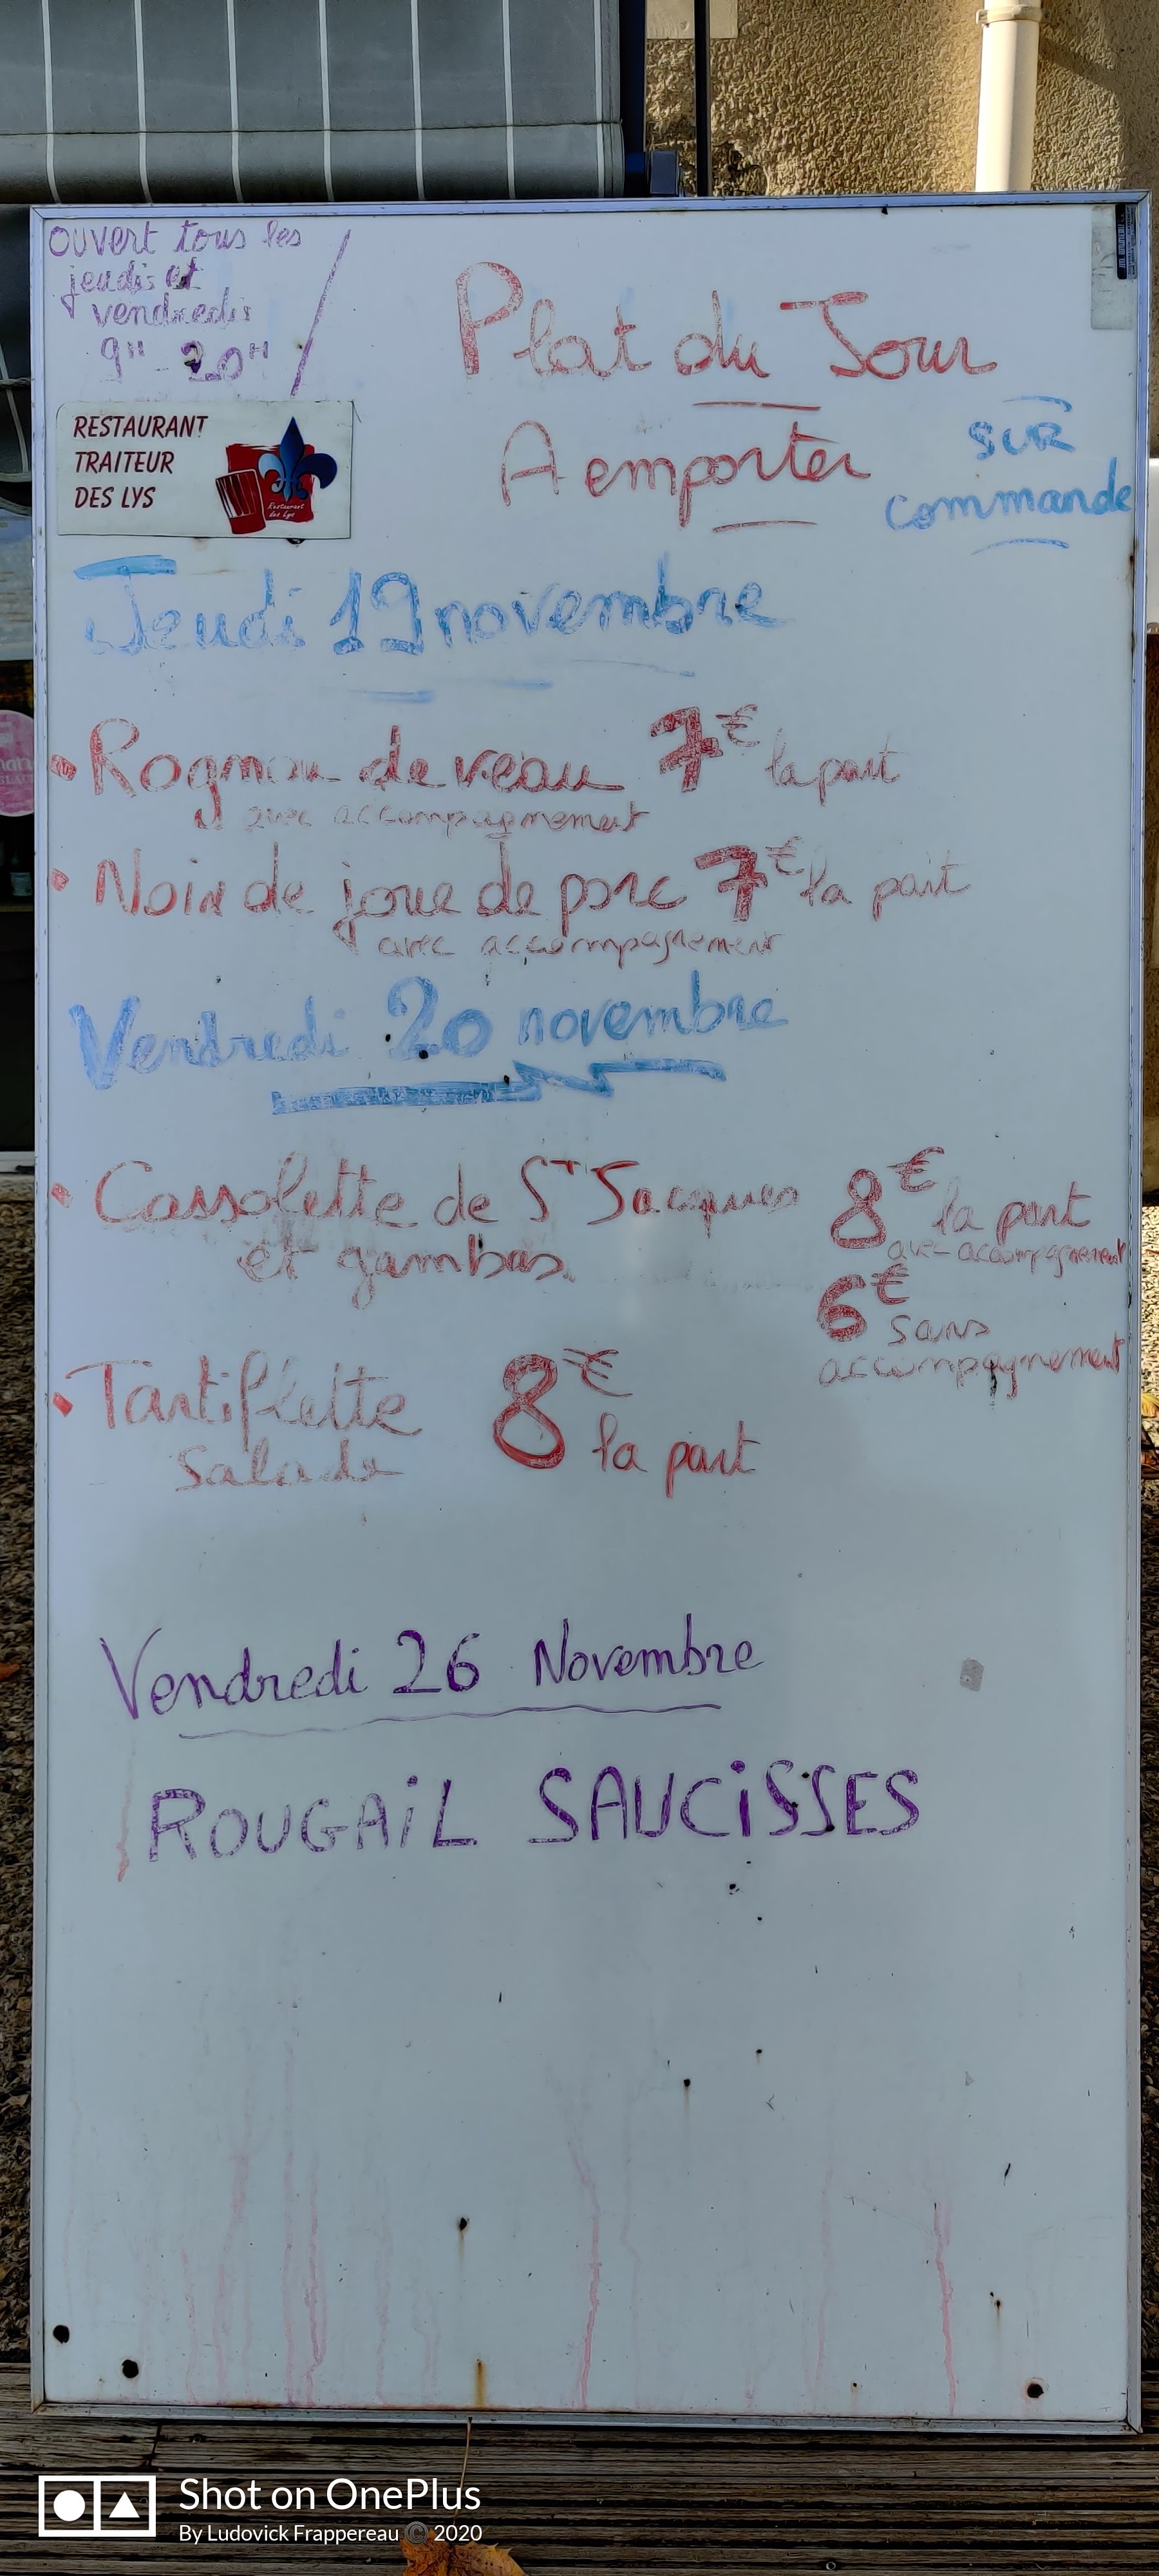 ouvert tous les
jeudis et
vendredis
9H 20H
Plat du Jour
A emporter
SUR
commande
RESTAURANT
TRAITEUR
DES LYS
Restaurant
des Lys
Jeudi 19 novembre
• Rognon de veau 7€ la part
avec accompagnement
• Noix de joue de porc 7€ la part
avec accompagnement
Vendredi 20 novembre
• Cassolette de St Jacques 8€ la part
et gambas
avec accompagnement
6€ sans
accompagnement
• Tartiflette 8€ la part
Salade
Vendredi 26 Novembre
ROUGAiL SAUCiSSES
Shot on OnePlus
By Ludovick Frappereau © 2020